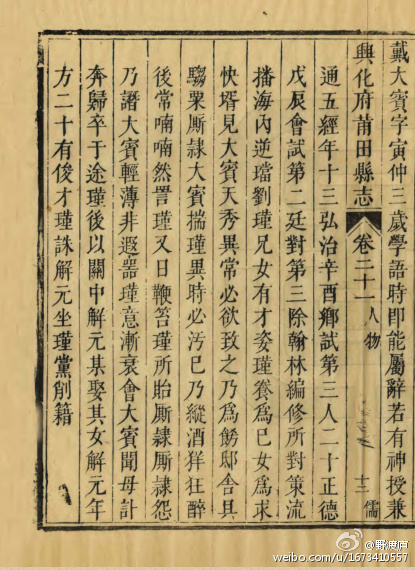 戴大賓字寅仲三歲學語時即能屬辭若有神授兼
興化府莆田縣志 卷二十一 人物 十三 儒
通五經年十三弘治辛酉鄉試第三人二十正德
戊辰會試第二廷對第三除翰林編修所對策流
播海內逆璫劉瑾兄女有才姿瑾養爲己女爲求
快壻見大賓天秀異常必欲致之乃爲飾邸舍具
騶粟厮隷大賓揣瑾異時必污已乃縱酒佯狂醉
後常喃喃然詈瑾又日鞭笞瑾所貽厮隷厮隷怨
乃譖大賓輕薄非遐器瑾意漸衰會大賓聞母計
奔歸卒于途瑾後以關中解元某娶其女解元年
方二十有俊才瑾誅解元坐瑾黨削籍
@野渡廬
weibo.com/u/1673410557